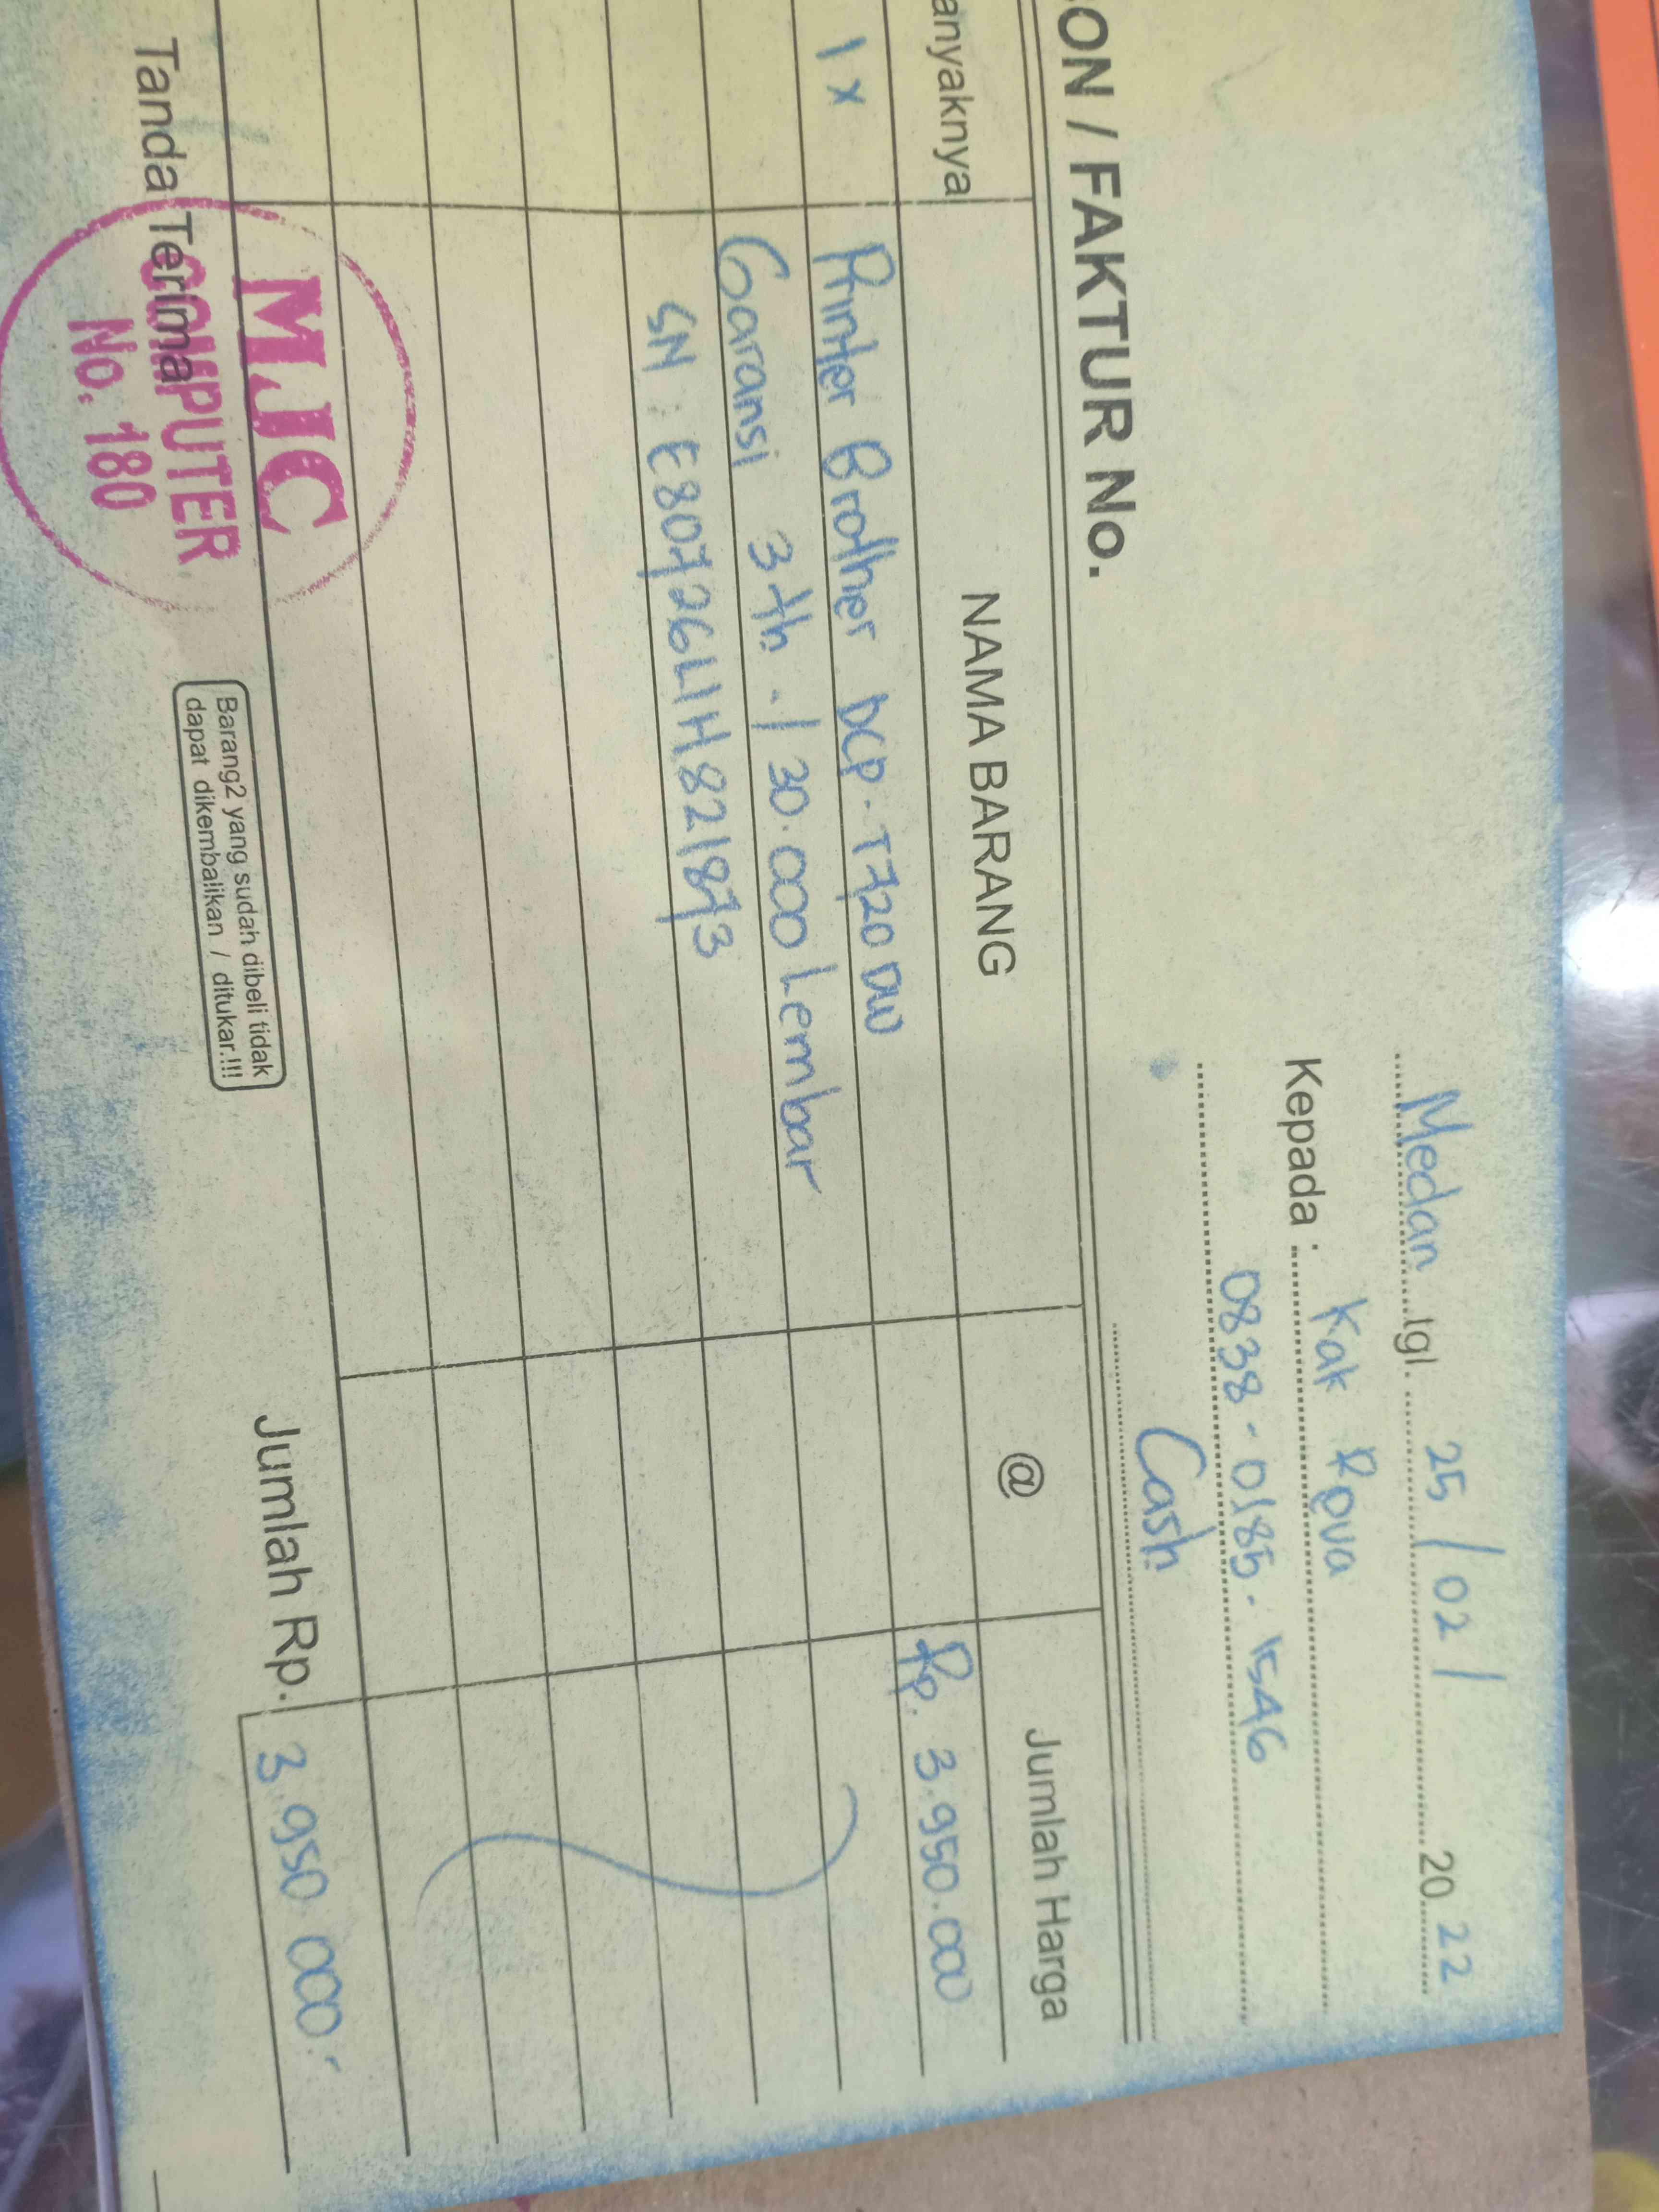 Medan tgl. 25/02/ 2022
Kepada : Kak Rova
0838-0185-1546
Cash
ON / FAKTUR No.
anyaknya NAMA BARANG @ Jumlah Harga
1x Printer Brother DCP-T720DW Rp. 3.950.000
Garansi 3 th / 30.000 Lembar
SN : E80726L1H821873
Jumlah Rp. 3.950.000.-
Tanda Terima
Barang2 yang sudah dibeli tidak
dapat dikembalikan / ditukar.!!!
MJC
COMPUTER
No. 180